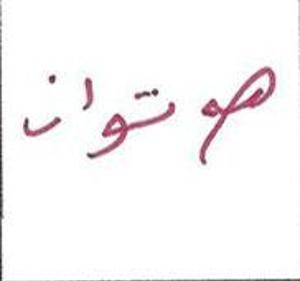 هو توان